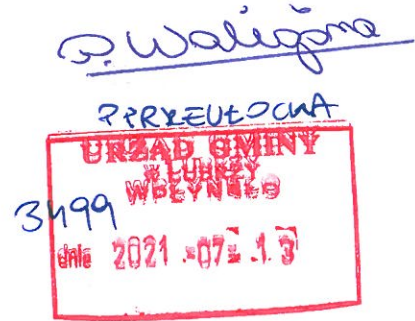 P. Waligóra
P. PRZEWŁOCKA
URZĄD GMINY
W LUBRZY
WPŁYNĘŁO
3499
dnia 2021 -07- 13